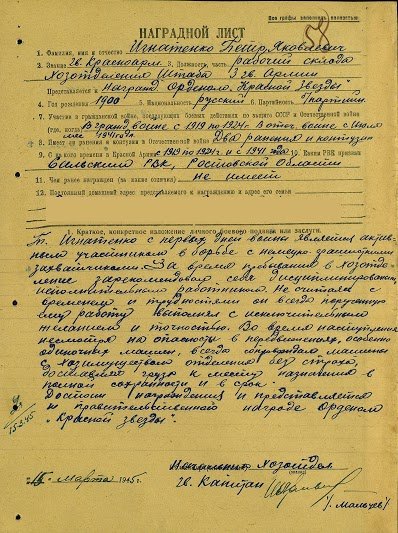 Все графы заполнять полностью
58
НАГРАДНОЙ ЛИСТ
1. Фамилия, имя и отчество Игнатенко Петр Яковлевич
2. Звание Гв. Красноарм. 3. Должность, часть рабочий склада
Хозотделения Штаба 3 гв. Армии
Представляется к Награжд. Орденом "Красной Звезды"
4. Год рождения 1900 5. Национальность русский 6. Партийность
7. Участие в гражданской войне, последующих боевых действиях по защите СССР и Отечественной войне
(где, когда) В гражд. войне с 1919 по 1924г. В отеч. войне с июля
1941г.
8. Имеет ли ранения и контузии в Отечественной войне Два ранения и контузии
9. С какого времени в Красной Армии с 1919 по 1924г. и с 1941 года 10. Каким РВК призван
РВК, Ростовской Области
11. Чем ранее награжден (за какие отличия) не имеет
12. Постоянный домашний адрес представляемого к награждению и адрес его семьи
I. Краткое, конкретное изложение личного боевого подвига или заслуг.
Т. Игнатенко с первых дней войны является актив-
ным участником в борьбе с немецко-фашистскими
захватчиками. За время пребывания в хозотде-
ление зарекомендовал себя дисциплинированным,
исполнительным работником. Не считаясь с
временем и трудностями он всегда порученную
ему работу выполнял с исключительным
желанием и точностью. Во время наступления
несмотря на опасности в передвижениях, особенно
одиночных машин, всегда сопровождал машины
с хозимуществом отделения без страха,
доставлял груза к месту назначения в
полной сохранности и в срок.
Достоин награждения и представляется
к правительственной награде Орденом
"Красной Звезды".
15.3.45
15 марта 1945 г.
Начальник Хозотдел
Гв. Капитан
/. Мальцев/